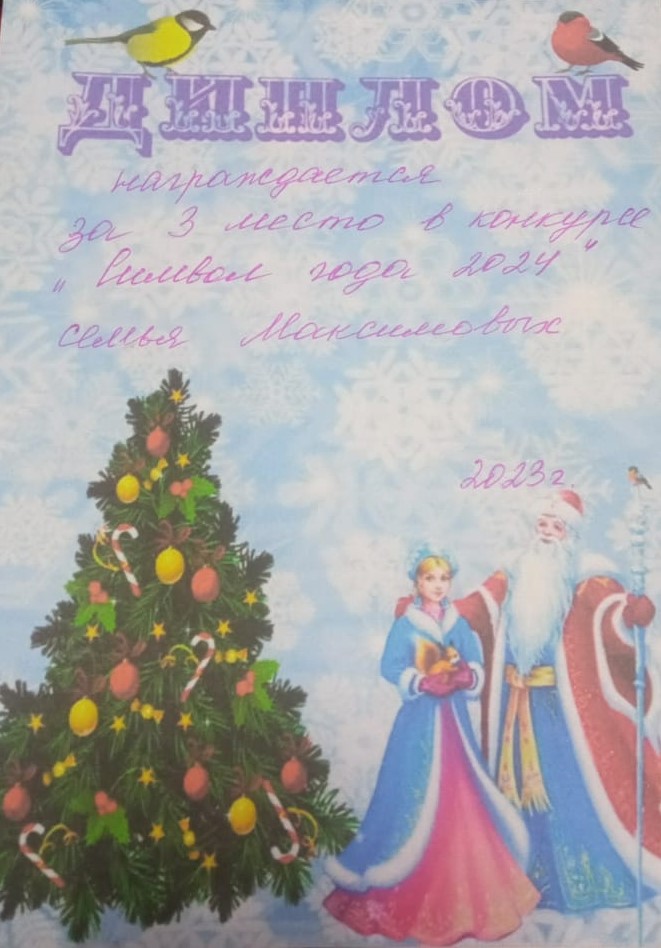 ДИПЛОМ
награждается
за 3 место в конкурсе
„ Символ года 2024 "
семья Максимовых
2023г.